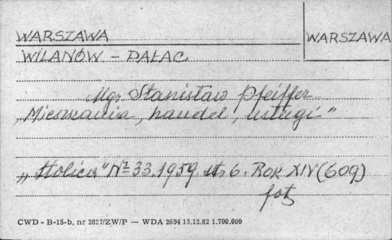 WARSZAWA
WARSZAWA
WILANÓW - PAŁAC
Mgr. Stanisław Pfeiffer
„Mieszkania, handel, usługi"
„Stolica" Nr 33.1959. str. 6. ROK XIV (609)
fot.
CWD - B-15-b, nr 2827/ZW/P — WDA 2694 13.12.62 1.700.000